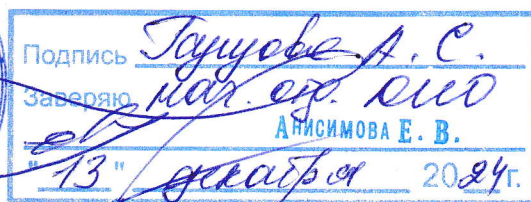 Подпись А. С.
Заверяю нач. отд.
Анисимова Е. В.
"13" декабря 2024г.